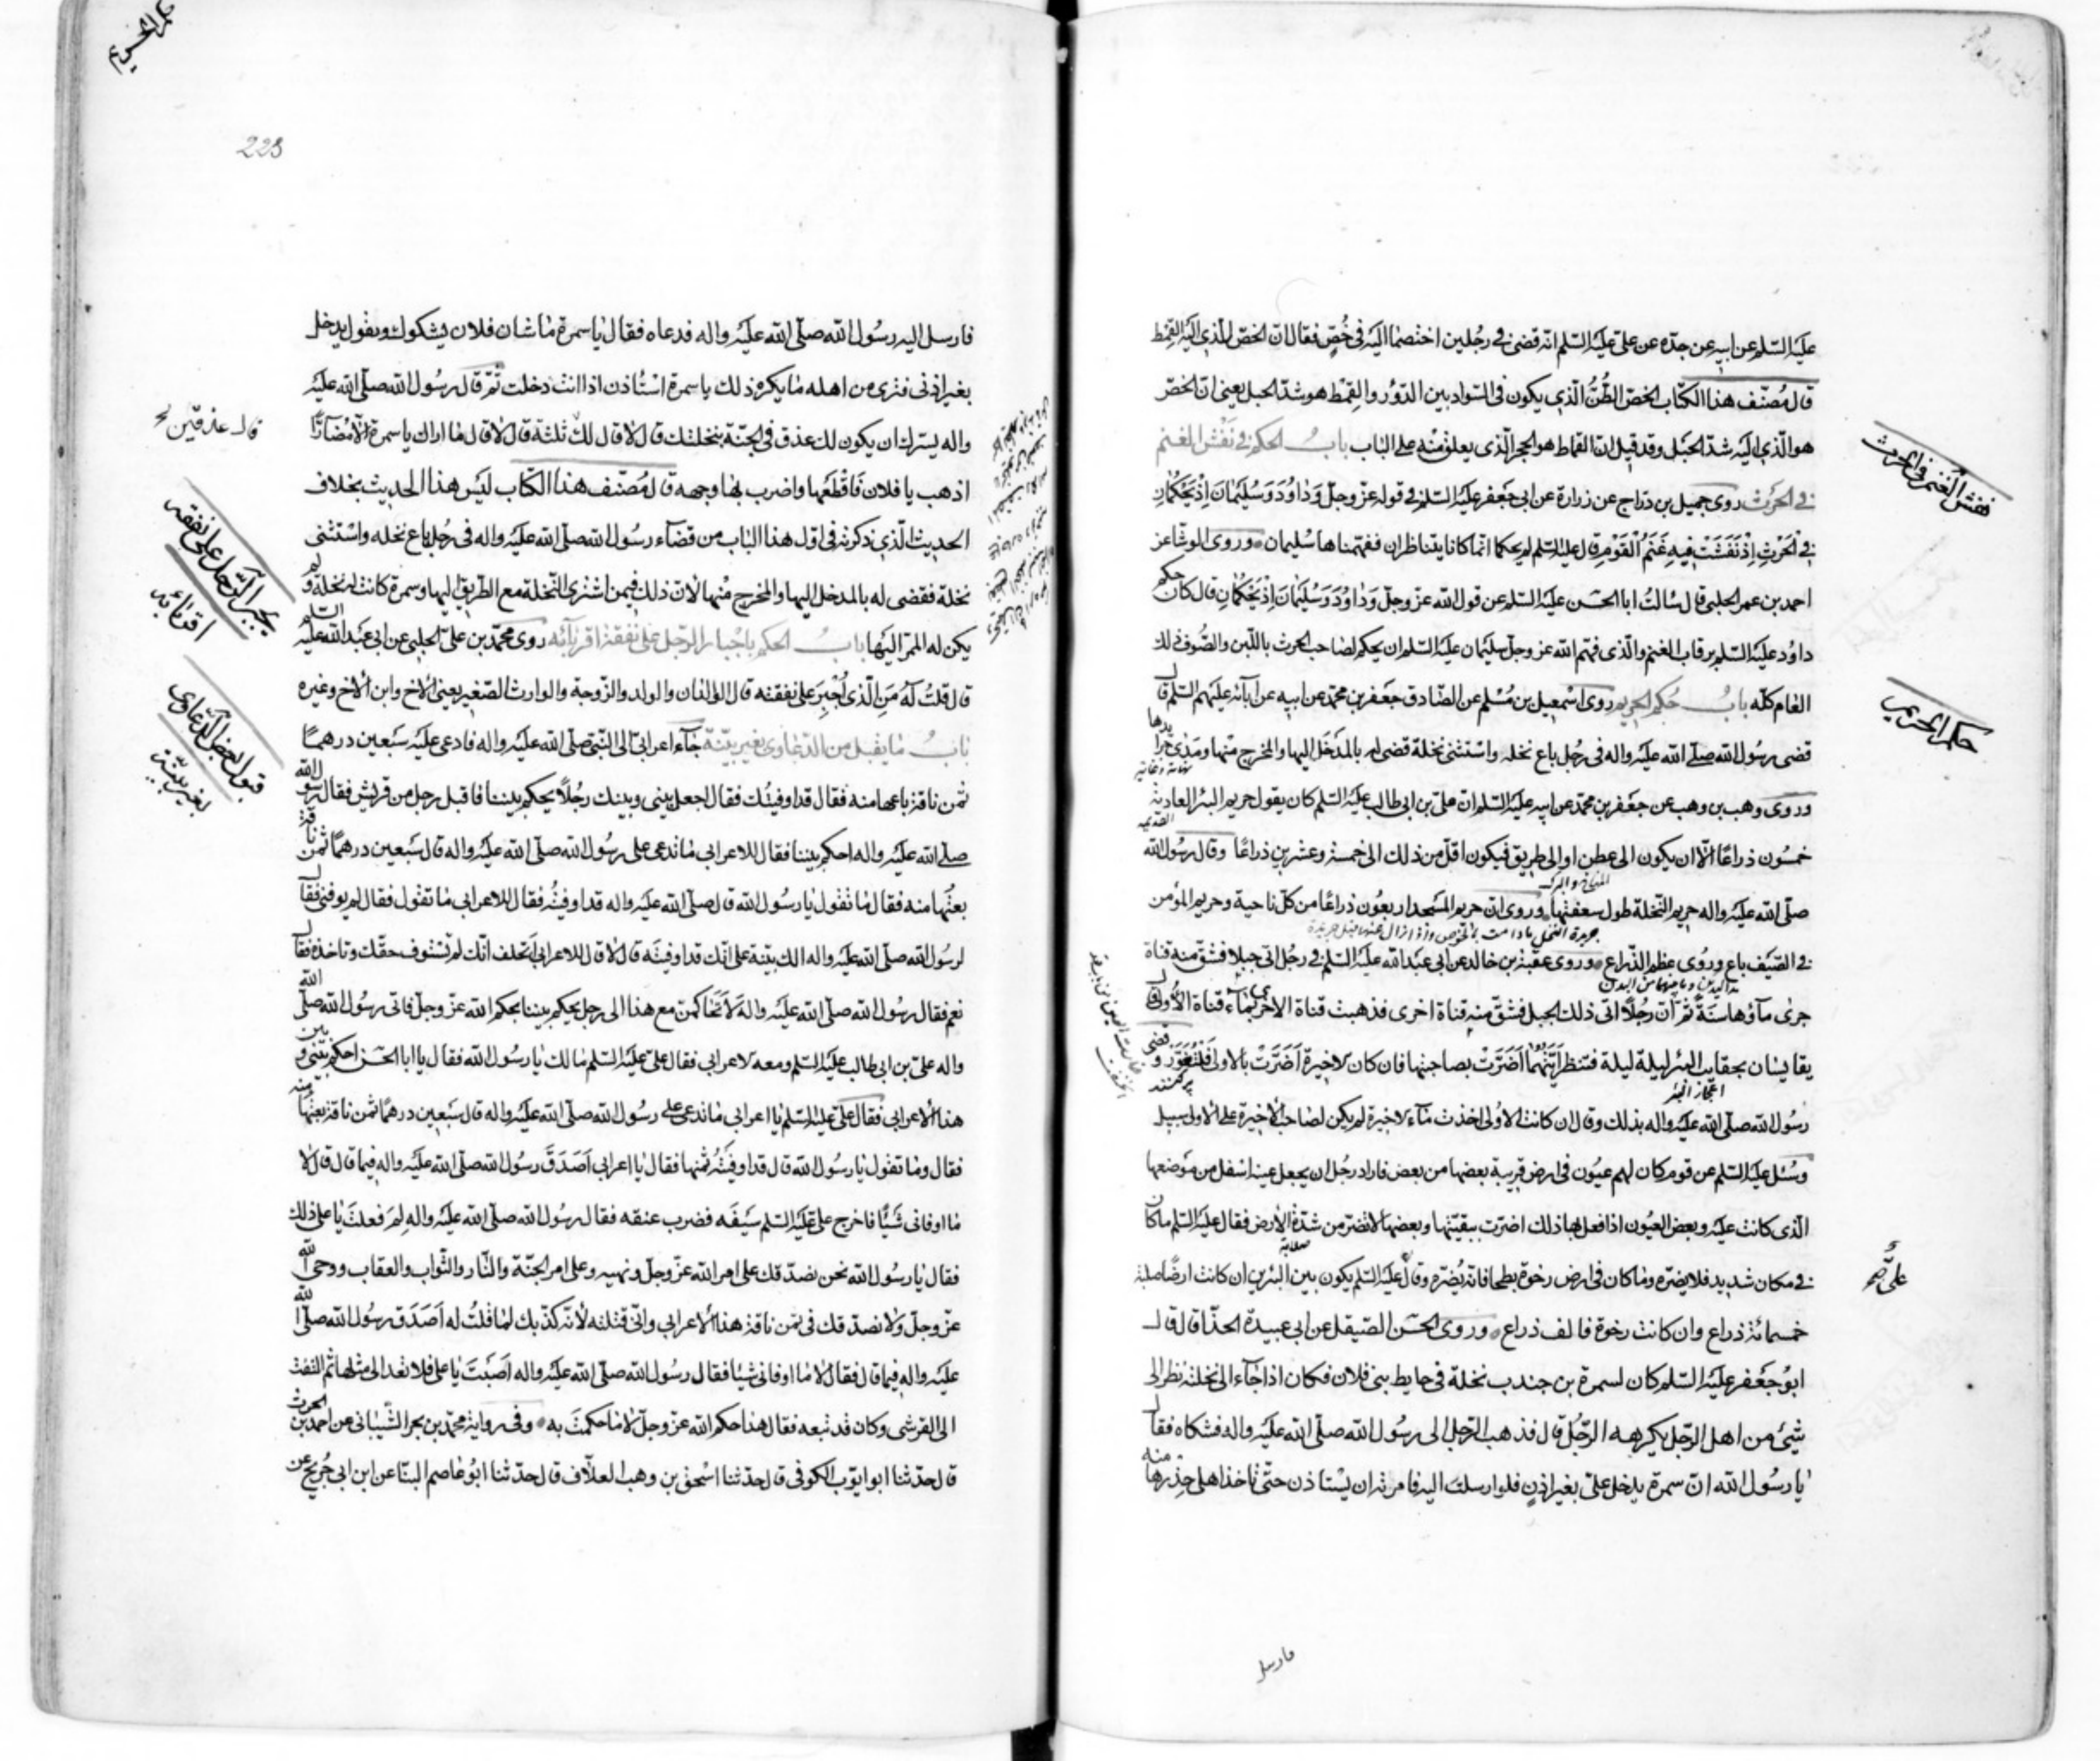 عليه السلم عن ابيه عن جده عن على عليه السلم انه قضى فى رجلين اختصما اليه فى خص فقال ان الخص للذى اليه القمط
قال مصنف هذا الكتاب الخص الطن الذى يكون فى السواد بين الدور والقمط هو شد الحبل يعنى ان الخص
هو الذى اليه شد الحبل وقد قيل ان القماط هو الحجر الذى يعلق منه على الباب باب الحكم فى نفش الغنم
فى الحرث روى جميل بن دراج عن زرارة عن ابى جعفر عليه السلم فى قوله عز وجل وداود وسليمان اذ يحكمان
فى الحرث اذ نفشت فيه غنم القوم قال عليه السلم لم يحكما انما كانا يتناظران ففهمناها سليمان وروى الوشا عن
احمد بن عمر الحلبى قال سالت ابا الحسن عليه السلم عن قول الله عز وجل وداود وسليمان اذ يحكمان قال كان حكم
داود عليه السلم برقاب الغنم والذى فهم الله عز وجل سليمان عليه السلم ان يحكم لصاحب الحرث باللبن والصوف ذلك
العام كله باب حكم الحريم روى اسمعيل بن مسلم عن الصادق جعفر بن محمد عن ابيه عن ابائه عليهم السلم قال
قضى رسول الله صلى الله عليه واله فى رجل باع نخله واستثنى نخلة قضى له بالمدخل اليها والمخرج منها ومدى جرايدها
وروى وهب بن وهب عن جعفر بن محمد عن ابيه عليه السلم ان على بن ابى طالب عليه السلم كان يقول حريم البئر العادية
خمسون ذراعا الا ان يكون الى عطن او الى طريق فيكون اقل من ذلك الى خمسة وعشرين ذراعا وقال رسول الله
صلى الله عليه واله حريم النخلة طول سعفتها وروى ان حريم المسجد اربعون ذراعا من كل ناحية وحريم المؤمن
فى الصيف باع وروى عظم الذراع وروى عقبة بن خالد عن ابى عبد الله عليه السلم فى رجل اتى جبلا فشق منه قناة
جرى ماؤها سنة ثم ان رجلا اتى ذلك الجبل فشق منه قناة اخرى فذهبت قناة الاخر بماء قناة الاولى قال
يقايسان بحقايب البئر ليلة ليلة فتنظر ايتهما اضرت بصاحبتها فان كان الاخيرة اضرت بالاولى فلتعور وقضى
رسول الله صلى الله عليه واله بذلك وقال ان كانت الاولى اخذت ماء الاخيرة لم يكن لصاحب الاخيرة على الاول سبيل
وسئل عليه السلم عن قوم كان لهم عيون فى ارض قريبة بعضها من بعض فاراد رجل ان يجعل عينه اسفل من موضعها
الذى كانت عليه وبعض العيون اذا فعل بها ذلك اضرت ببقيتها وبعضها لا تضر من شدة الارض فقال عليه السلم ما كان
فى مكان شديد فلا يضره وما كان فى ارض رخوة بطحا فانه يضره وقال عليه السلم يكون بين البئرين ان كانت ارضا صلبة
خمسمائة ذراع وان كانت رخوة فالف ذراع وروى الحسن الصيقل عن ابى عبيدة الحذا قال قال
ابو جعفر عليه السلم كان لسمرة بن جندب نخلة فى حايط بنى فلان فكان اذا جاء الى نخلته نظر الى
شيئ من اهل الرجل يكرهه الرجل قال فذهب الرجل الى رسول الله صلى الله عليه واله فشكاه فقال
يا رسول الله ان سمرة يدخل على بغير اذن فلو ارسلت اليه فامرته ان يستاذن حتى تاخذ اهلى حذرها منه
فارسل
نفش الغنم فى الحرث
حكم الحريم
فارسل اليه رسول الله صلى الله عليه واله فدعاه فقال يا سمرة ما شان فلان يشكوك ويقول يدخل
بغير اذنى فترى من اهله ما يكره ذلك يا سمرة استاذن اذا انت دخلت ثم قال رسول الله صلى الله عليه
واله يسرك ان يكون لك عذق فى الجنة بنخلتك قال لا قال لك ثلثة قال لا قال ما اراك يا سمرة الا مضارا
اذهب يا فلان فاقطعها واضرب بها وجهه قال مصنف هذا الكتاب ليس هذا الحديث بخلاف
الحديث الذى ذكرته فى اول هذا الباب من قضاء رسول الله صلى الله عليه واله فى رجل باع نخله واستثنى
نخلة فقضى له بالمدخل اليها والمخرج منها لان ذلك فيمن اشترى النخلة مع الطريق اليها وسمرة كانت له نخلة ولم
يكن له الممر اليها باب الحكم باجبار الرجل على نفقة اقربائه روى محمد بن على الحلبى عن ابى عبد الله عليه السلم
قال قلت له من الذى اجبر على نفقته قال الوالدان والولد والزوجة والوارث الصغير يعنى الاخ وابن الاخ وغيره
باب ما يقبل من الدعاوى بغير بينة جاء اعرابى الى النبى صلى الله عليه واله فادعى عليه سبعين درهما
ثمن ناقة باعها منه فقال قد اوفيتك فقال اجعل بينى وبينك رجلا يحكم بيننا فاقبل رجل من قريش فقال رسول الله
صلى الله عليه واله احكم بيننا فقال للاعرابى ما تدعى على رسول الله صلى الله عليه واله قال سبعين درهما ثمن ناقة
بعتها منه فقال ما تقول يا رسول الله قال صلى الله عليه واله قد اوفيته فقال للاعرابى ما تقول فقال لم يوفنى فقال
لرسول الله صلى الله عليه واله الك بينة على انك قد اوفيته قال لا قال للاعرابى اتحلف انك لم تستوف حقك وتاخذه فقال
نعم فقال رسول الله صلى الله عليه واله لاتحاكمن مع هذا الى رجل يحكم بيننا بحكم الله عز وجل فاتى رسول الله صلى الله
واله على بن ابى طالب عليه السلم ومعه الاعرابى فقال على عليه السلم مالك يا رسول الله فقال يا ابا الحسن احكم بينى وبين
هذا الاعرابى فقال على عليه السلم يا اعرابى ما تدعى على رسول الله صلى الله عليه واله قال سبعين درهما ثمن ناقة بعتها منه
فقال وما تقول يا رسول الله قال قد اوفيته ثمنها فقال يا اعرابى اصدق رسول الله صلى الله عليه واله فيما قال قال لا
ما اوفانى شيئا فاخرج على عليه السلم سيفه فضرب عنقه فقال رسول الله صلى الله عليه واله لم فعلت يا على ذلك
فقال يا رسول الله نحن نصدقك على امر الله عز وجل ونهيه وعلى امر الجنة والنار والثواب والعقاب ووحى الله
عز وجل ولا نصدقك فى ثمن ناقة هذا الاعرابى وانى قتلته لانه كذبك لما قلت له اصدق رسول الله صلى الله
عليه واله فيما قال فقال لا ما اوفانى شيئا فقال رسول الله صلى الله عليه واله اصبت يا على فلا تعد الى مثلها ثم التفت
الى القرشى وكان قد تبعه فقال هذا حكم الله عز وجل لا ما حكمت به وفى رواية محمد بن بحر الشيبانى عن احمد بن الحرث
قال حدثنا ابو ايوب الكوفى قال حدثنا اسحق بن وهب العلاف قال حدثنا ابو عاصم النبا عن ابن ابى جريح عن
223
يجبر الرجل على نفقة
اقربائه
قبول بعض الدعاوى
بغير بينة